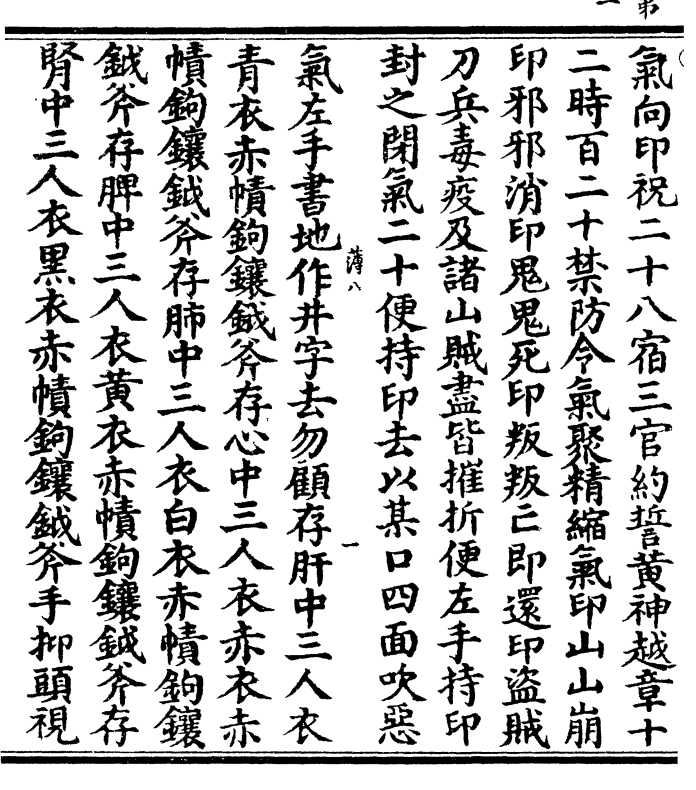 氣向印祝二十八宿三官約誓黃神越章十
二時百二十禁防令氣聚精縮氣印山山崩
印邪邪消印鬼鬼死印叛叛亡即還印盜賊
刀兵毒疫及諸山賊盡皆摧折便左手持印
封之閉氣二十便持印去以某口四面吹惡
薄八
一
氣左手書地作井字去勿顧存肝中三人衣
青衣赤幘鉤鑲鉞斧存心中三人衣赤衣赤
幘鉤鑲鉞斧存肺中三人衣白衣赤幘鉤鑲
鉞斧存脾中三人衣黃衣赤幘鉤鑲鉞斧存
腎中三人衣黑衣赤幘鉤鑲鉞斧手抑頭視